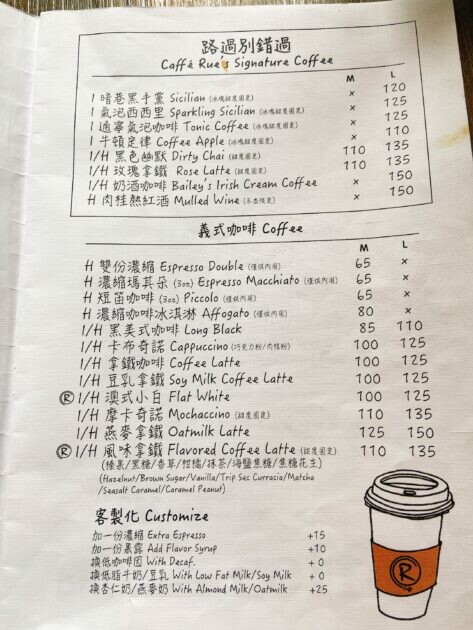 路過別錯過
Caffé Rue's Signature Coffee
M L
I 暗巷黑手黨 Sicilian (冰塊甜度固定) × 120
I 氣泡西西里 Sparkling Sicilian (冰塊甜度固定) × 125
I 通寧氣泡咖啡 Tonic Coffee (冰塊甜度固定) × 125
I 牛頓定律 Coffee Apple (冰塊甜度固定) × 110
I/H 黑色幽默 Dirty Chai (甜度固定) 110 135
I/H 玫瑰拿鐵 Rose Latte (甜度固定) 110 135
I/H 奶酒咖啡 Bailey's Irish Cream Coffee × 150
H 肉桂熱紅酒 Mulled Wine (不含酒精) × 150
義式咖啡 Coffee
M L
H 雙份濃縮 Espresso Double (僅供內用) 65 ×
H 濃縮瑪其朵 (3oz) Espresso Macchiato (僅供內用) 65 ×
H 短笛咖啡 (3oz) Piccolo (僅供內用) 65 ×
H 濃縮咖啡冰淇淋 Affogato (僅供內用) 80 ×
I/H 黑美式咖啡 Long Black 85 110
I/H 卡布奇諾 Cappuccino (巧克力粉/肉桂粉) 100 125
I/H 拿鐵咖啡 Coffee Latte 100 125
I/H 豆乳拿鐵 Soy Milk Coffee Latte 100 125
R I/H 澳式小白 Flat White 100 125
I/H 摩卡奇諾 Mochaccino (甜度固定) 110 135
I/H 燕麥拿鐵 Oatmilk Latte 125 150
R I/H 風味拿鐵 Flavored Coffee Latte (甜度固定) 110 135
(榛果/黑糖/香草/柑橘/抹茶/海鹽焦糖/焦糖花生)
(Hazelnut/Brown Sugar/Vanilla/Trip Sec Curracia/Matcha
/Seasalt Caramel/Caramel Peanut)
客製化 Customize
加一份濃縮 Extra Espresso +15
加一份果露 Add Flavor Syrup +10
換低咖啡因 With Decaf. + 0
換低脂牛奶/豆乳 With Low Fat Milk/Soy Milk + 0
換杏仁奶/燕麥奶 With Almond Milk/Oatmilk +25
R